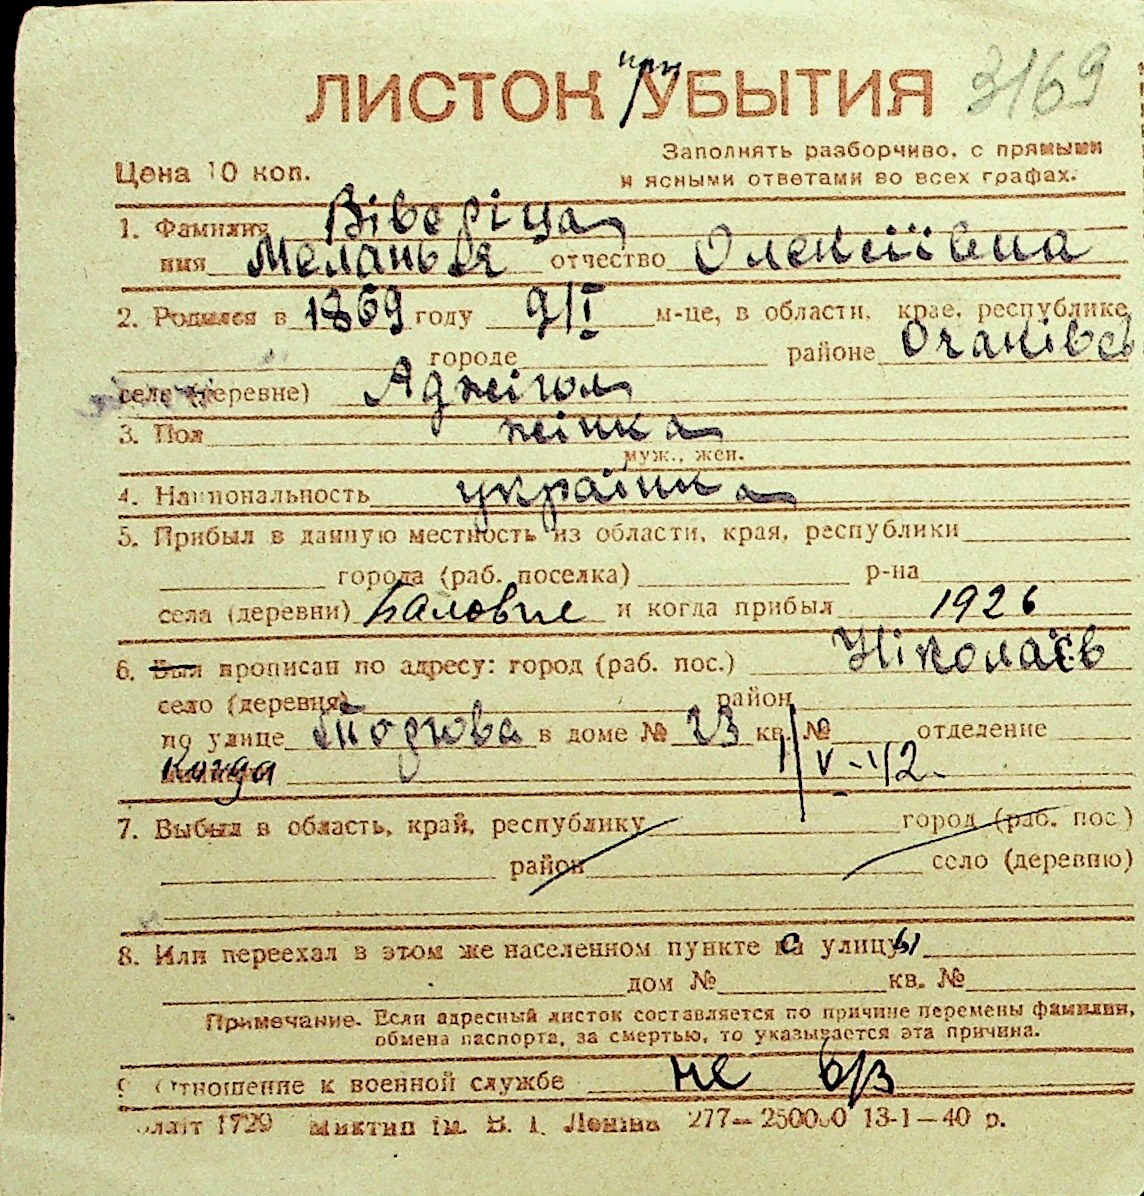 ЛИСТОК при УБЫТИЯ 3169
Заполнять разборчиво, с прямыми
Цена 10 коп. и ясными ответами во всех графах.
1. Фамилия Віверіца
имя Меланья отчество Олексіївна
2. Родился в 1869 году 9/I м-це, в области, крае, республике,
городе районе Очаківсь
селе (деревне) Аджігол
3. Пол жінка
муж., жен.
4. Национальность українка
5. Прибыл в данную местность из области, края, республики
города (раб. поселка) р-на
села (деревни) Баловне и когда прибыл 1926
6. Был прописан по адресу: город (раб. пос.) Ніколаєв
село (деревня) район
по улице в доме № 23 кв. № отделение
Когда 1/V-42.
7. Выбыл в область, край, республику город (раб. пос.)
район село (деревню)
8. Или переехал в этом же населенном пункте с улицы
дом № кв. №
Примечание. Если адресный листок составляется по причине перемены фамилии,
обмена паспорта, за смертью, то указывается эта причина.
9 Отношение к военной службе не в/з
1729 Миктип ім. В. І. Леніна 277—250000 13-1—40 р.